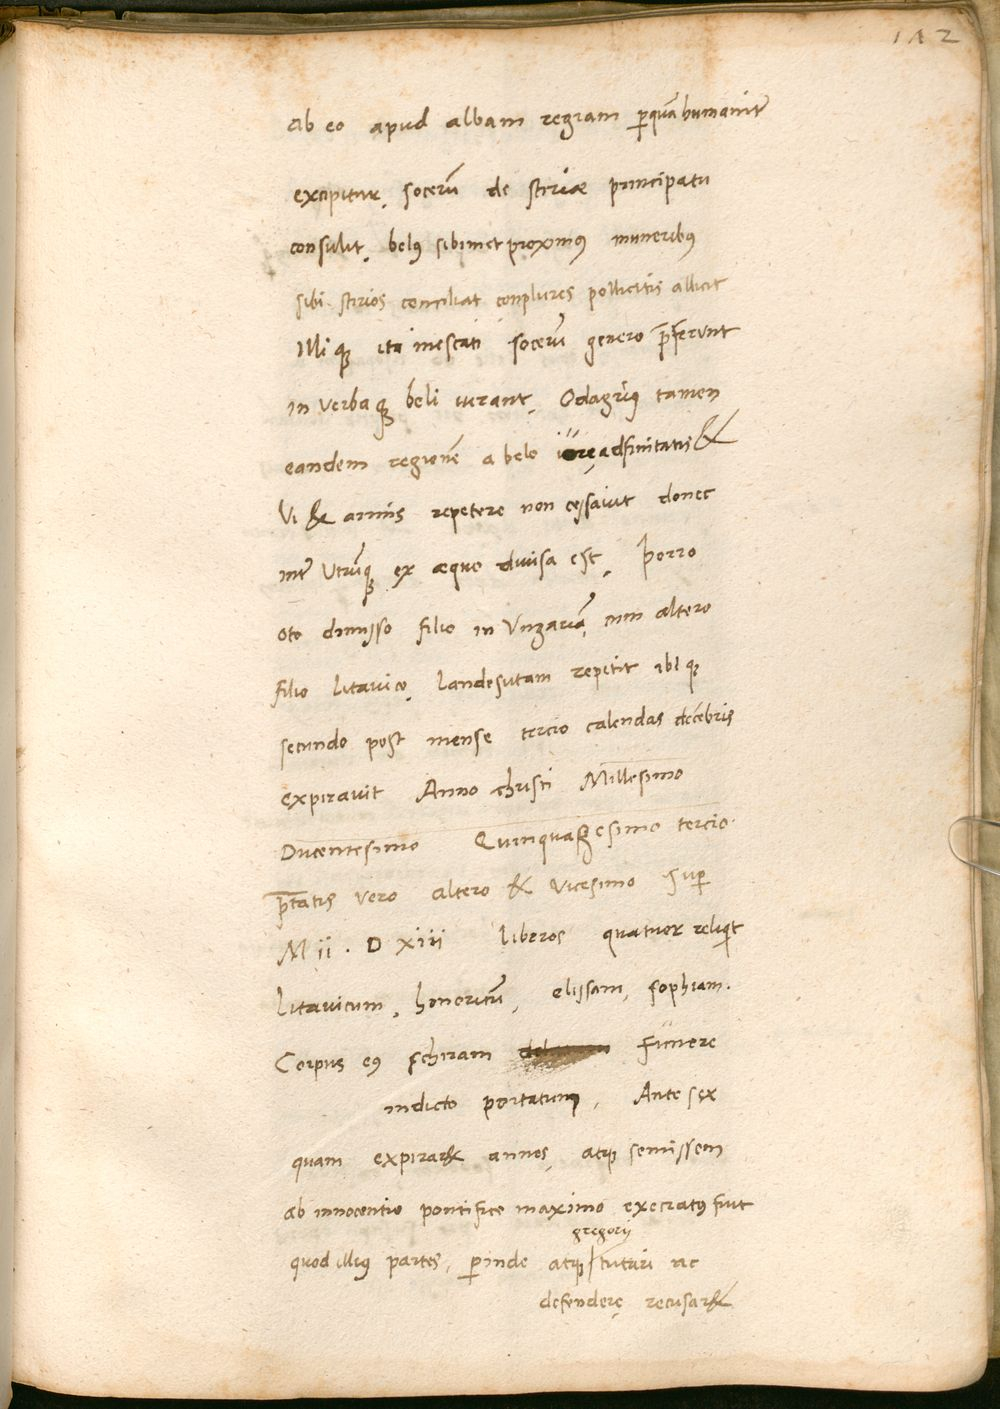 112
ab eo apud albam regiam ꝑquā humanit̄
excipitur, socerū de stiriæ principatu
consulit, belꝰ sibimet proximꝰ muneribꝰ
sibi stirios conciliat complures pollicitis allicit
Illi qꝫ ita inescati socerū genero p̄ferunt
in verba qꝫ beli iurant, Odagriꝰ tamen
eandem regionē a belo iure adfinitatis &
Vi & armis repetere non cessauit donec
int̄ Utrūqꝫ ex æquo diuisa est, Porro
oto dimisso filio in Vngariā, cum altero
filio litauico, landesutam repetit ibi qꝫ
secundo post mense tercio calendas decēbris
expirauit Anno christi Millesimo
Ducentesimo Quinquagesimo tercio.
p̄tatis vero altero & vicesimo sup̄
M ii . D xiii liberos quatuor reliqͥt
litauicum, honoricū, elissam, sophiam.
Corpus eꝰ schiram funere
indicto portatum, Ante sex
quam expirar& annos, atqꝫ semissem
ab innocentio pontifice maximo execratꝰ fuit
gregorij
quod illiꝰ partes, ꝑinde atqꝫ tutari ac
defendere recusar&